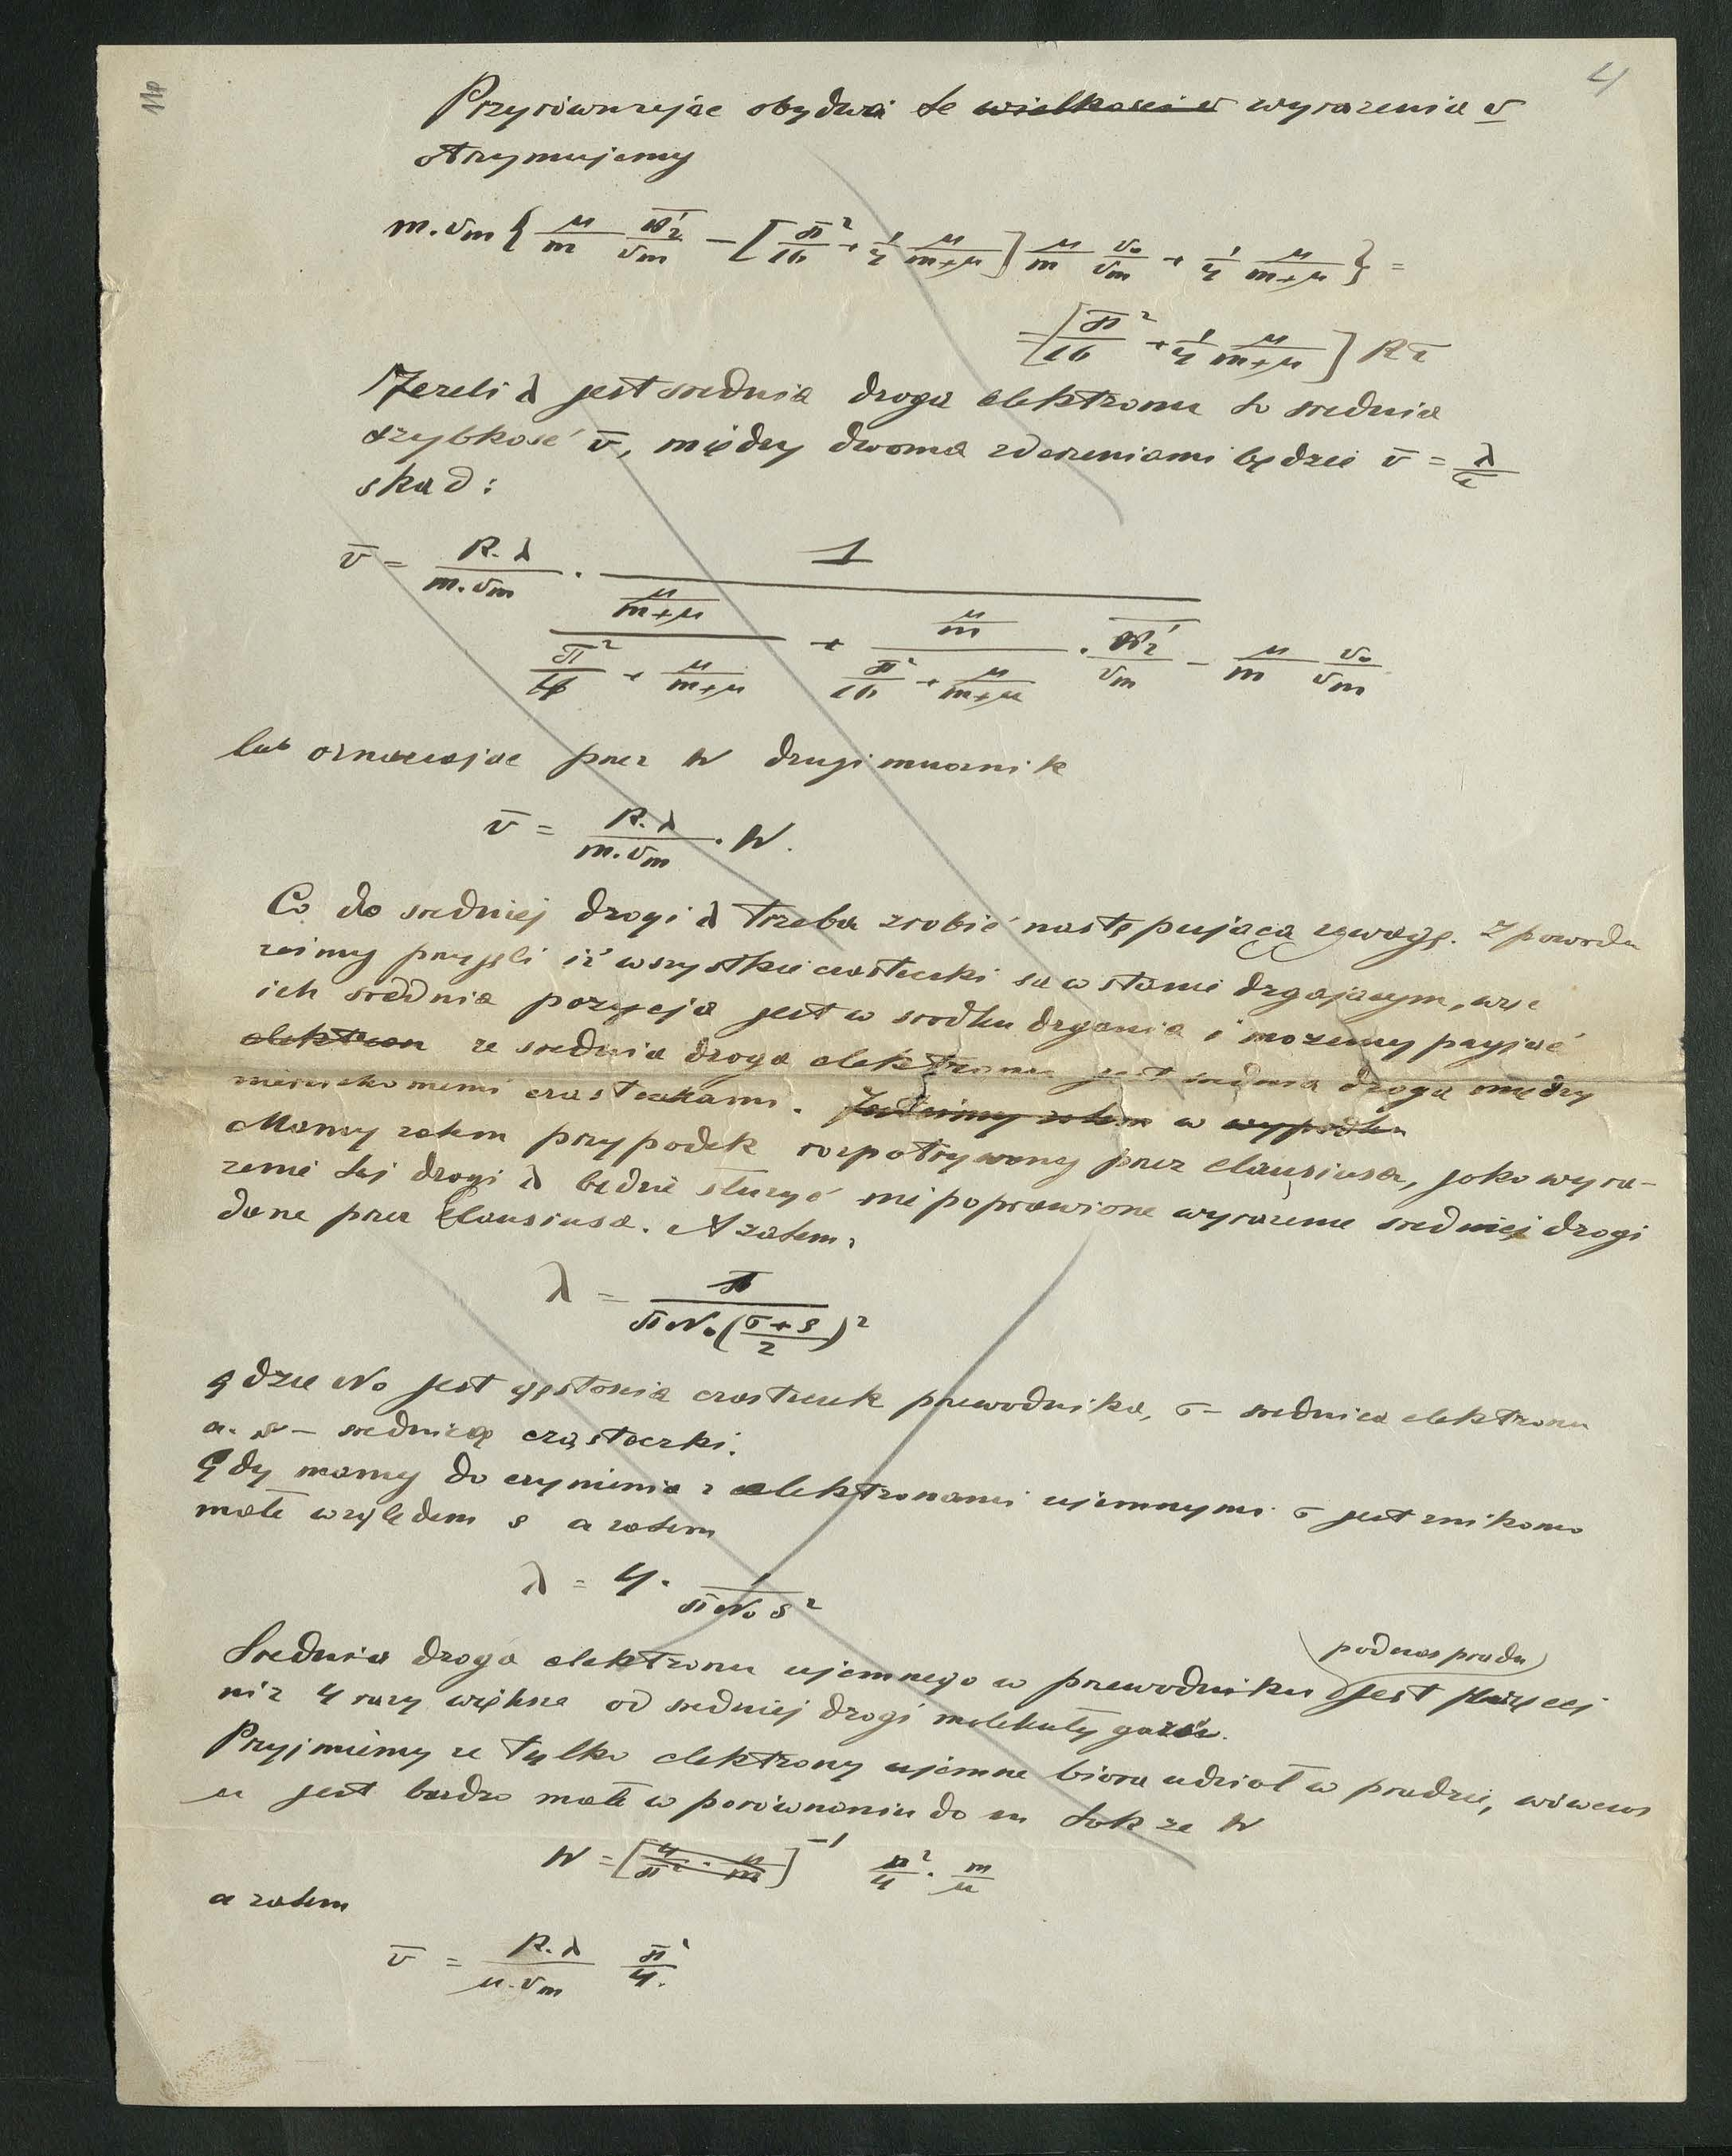 4
11p
Przyrównując obydwa te wielkosci v wyrazenia v
otrzymujemy
m.vm { μ/m w̅'₂/vm − [π²/16 + 1/4 μ/(m+μ)] μ/m v₀/vm + 1/4 μ/(m+μ) } =
= [π²/16 + 1/4 μ/(m+μ)] Rτ
Jezeli λ jest srednia droga elektronu to srednia
szybkosć v̄, między dwoma zderzeniami będzie v̄ = λ/τ
skad :
v̄ = R.λ/(m.vm) . 1 / ( (μ/(m+μ))/(π²/4 + μ/(m+μ)) + (μ/m)/(π²/16 + μ/(m+μ)) . w̅'₂/vm − μ/m v₀/vm )
lub oznaczajac przez W drugi mnoznik
v̄ = R.λ/(m.vm) . W.
Co do sredniej drogi λ trzeba zrobić następującą uwagę. Z powodu
zeimy przyjęli iż wszystkie czasteczki sa w stanie drgajacym, więc
ich srednia pozycja jest w srodku drgania i mozemy przyjać
elektron ze srednia droga elektronu jest srednia droga między
nieruchomemi czasteczkami. w
Mamy zatem przypadek rozpatrywany przez Clausiusa, jako wyra-
zenie tej drogi λ będzie słuzyć niepoprawione wyrazenie sredniej drogi
dane przez Clausiusa. A zatem,
λ = 1/(πN₀((σ+s)/2)²)
gdzie N₀ jest gęstoscia czasteczek przewodnika, σ – srednica elektronu
a. s – srednicą cząsteczki.
Gdy mamy do czynienia z elektronami ujemnymi σ jest znikomo
małe względem s a zatem
λ = 4. 1/(πN₀ s²)
podczas pradu
Srednia droga elektronu ujemnego w przewodniku jest więcej
niz 4 razy większa od sredniej drogi molekuły gazu.
Przyjmiemy ze tylko elektrony ujemne biora udział w pradzie, wówczas
μ jest bardzo małe w porównaniu do m tak ze W
W = [4/π² . μ/m]⁻¹ π²/4 . m/μ
a zatem
v̄ = R.λ/(μ.vm) π²/4.